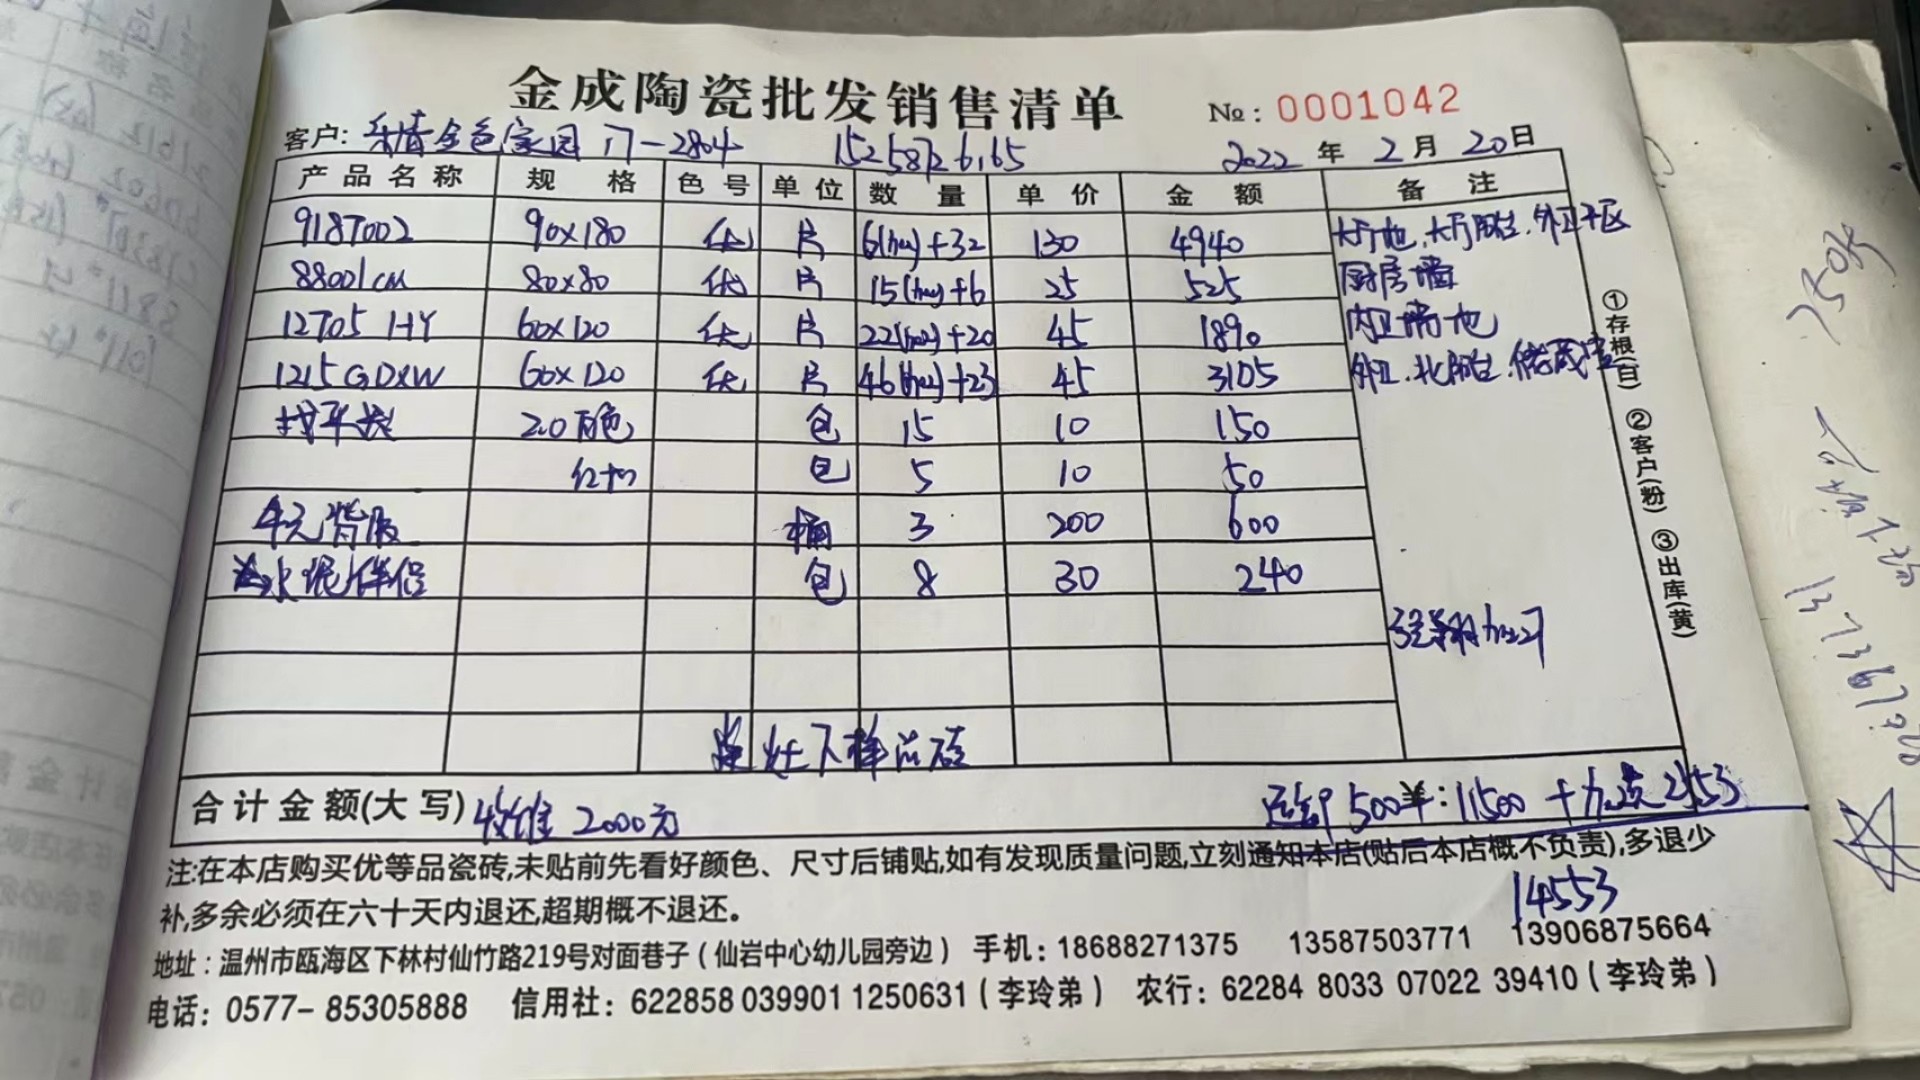 金成陶瓷批发销售清单 №: 0001042
客户: 乐清金色家园 17-2804 15258726165 2022年2月20日
产品名称 规格 色号 单位 数量 单价 金额 备注
9187002 90×180 优 片 6(hw)+32 130 4940
88001cm 80×80 优 片 15(hw)+6 25 525 厨房墙
12705 HY 60×120 优 片 22(hw)+20 45 1890 内卫墙地
1215GDXW 60×120 优 片 46(hw)+23 45 3105 外卫.北阳台.储藏室
找平器 2.0 包 15 10 150
包 5 10 50
背胶 桶 3 200 600
水泥伴侣 包 8 30 240
灶下样品砖
合计金额(大写) 收维 2000元 500 ¥: 11500 + 加点2553
14553
注:在本店购买优等品瓷砖,未贴前先看好颜色、尺寸后铺贴,如有发现质量问题,立刻通知本店(贴后本店概不负责),多退少
补,多余必须在六十天内退还,超期概不退还。
地址:温州市瓯海区下林村仙竹路219号对面巷子(仙岩中心幼儿园旁边) 手机:18688271375 13587503771 13906875664
电话:0577-85305888 信用社:622858 039901 1250631(李玲弟) 农行:62284 8033 07022 39410(李玲弟)
①存根(白) ②客户(粉) ③出库(黄)